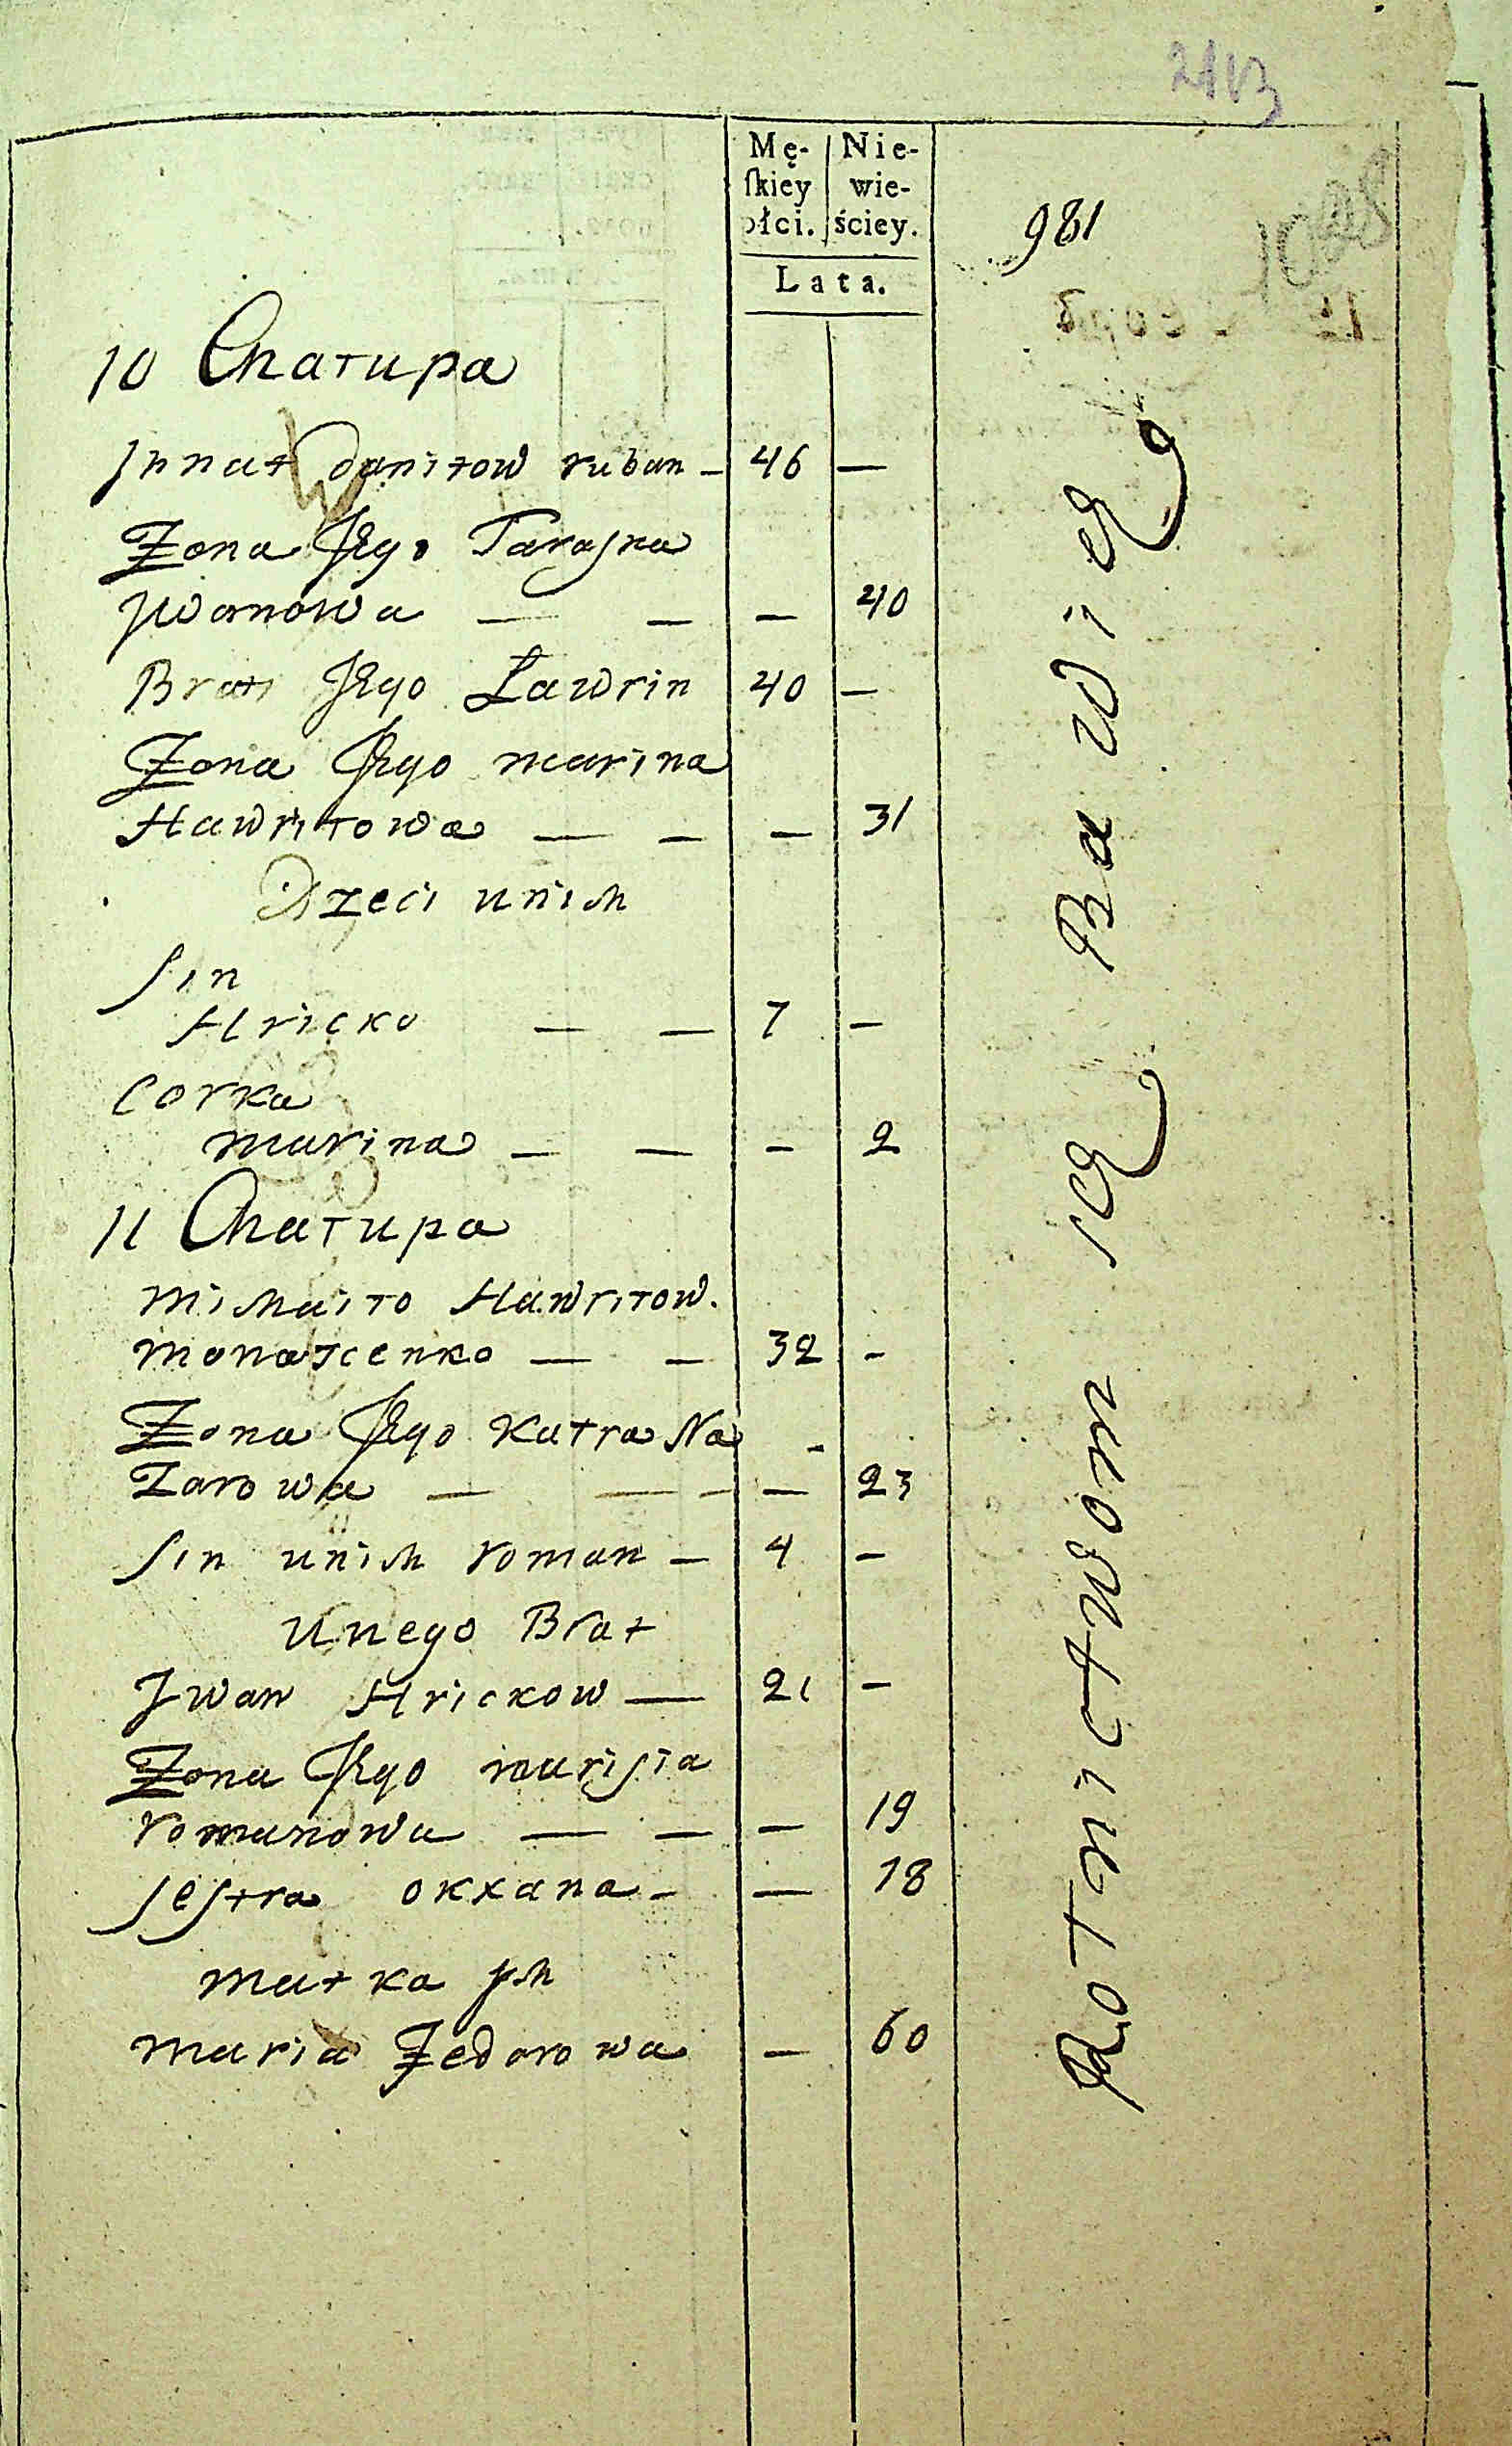 Mę- Nie-
ſkiey wie-
płci. ściey.
Lata.
981
10 Chałupa
Ihnat Daniłow ruban - 46 —
Żona Jego Taraska
Jwanowa — — — 40
Brat Jego Ławrin 40 —
Żona Jego marina
Hawriłowa — — — 31
Dzeci unich
Sin
Hricko — — 7 —
Corka
marina — — - 2
11 Chałupa
Michaiło Hawriłow.
monatcenko — — 32 -
Żona Jego Katra Na -
Zarowa — — - — 23
Sin unich roman — 4 —
Unego Brat
Jwan Hrickow — 21 -
Żona Jego marisia
romanowa — — — 19
Sestra okxana - — 18
matka jch
maria Fedorowa — 60
Rotnictwom się Bawię